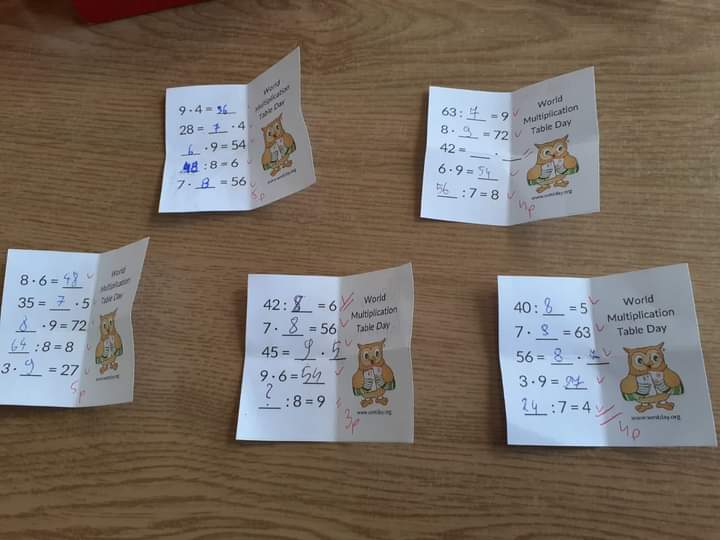 9 · 4 = 36
28 = 7 · 4
6 · 9 = 54
48 : 8 = 6
7 · 8 = 56
5p
World
Multiplication
Table Day
www.wmtday.org
63 : 7 = 9
8 · 9 = 72
42 = __ · __
6 · 9 = 54
56 : 7 = 8
4p
World
Multiplication
Table Day
www.wmtday.org
8 · 6 = 48
35 = 7 · 5
8 · 9 = 72
64 : 8 = 8
3 · 9 = 27
5p
World
Multiplication
Table Day
www.wmtday.org
42 : 8 = 6
7 · 8 = 56
45 = 9 · 5
9 · 6 = 54
? : 8 = 9
3p
World
Multiplication
Table Day
www.wmtday.org
40 : 8 = 5
7 · 9 = 63
56 = 8 · 7
3 · 9 = 27
24 : 7 = 4
4p
World
Multiplication
Table Day
www.wmtday.org